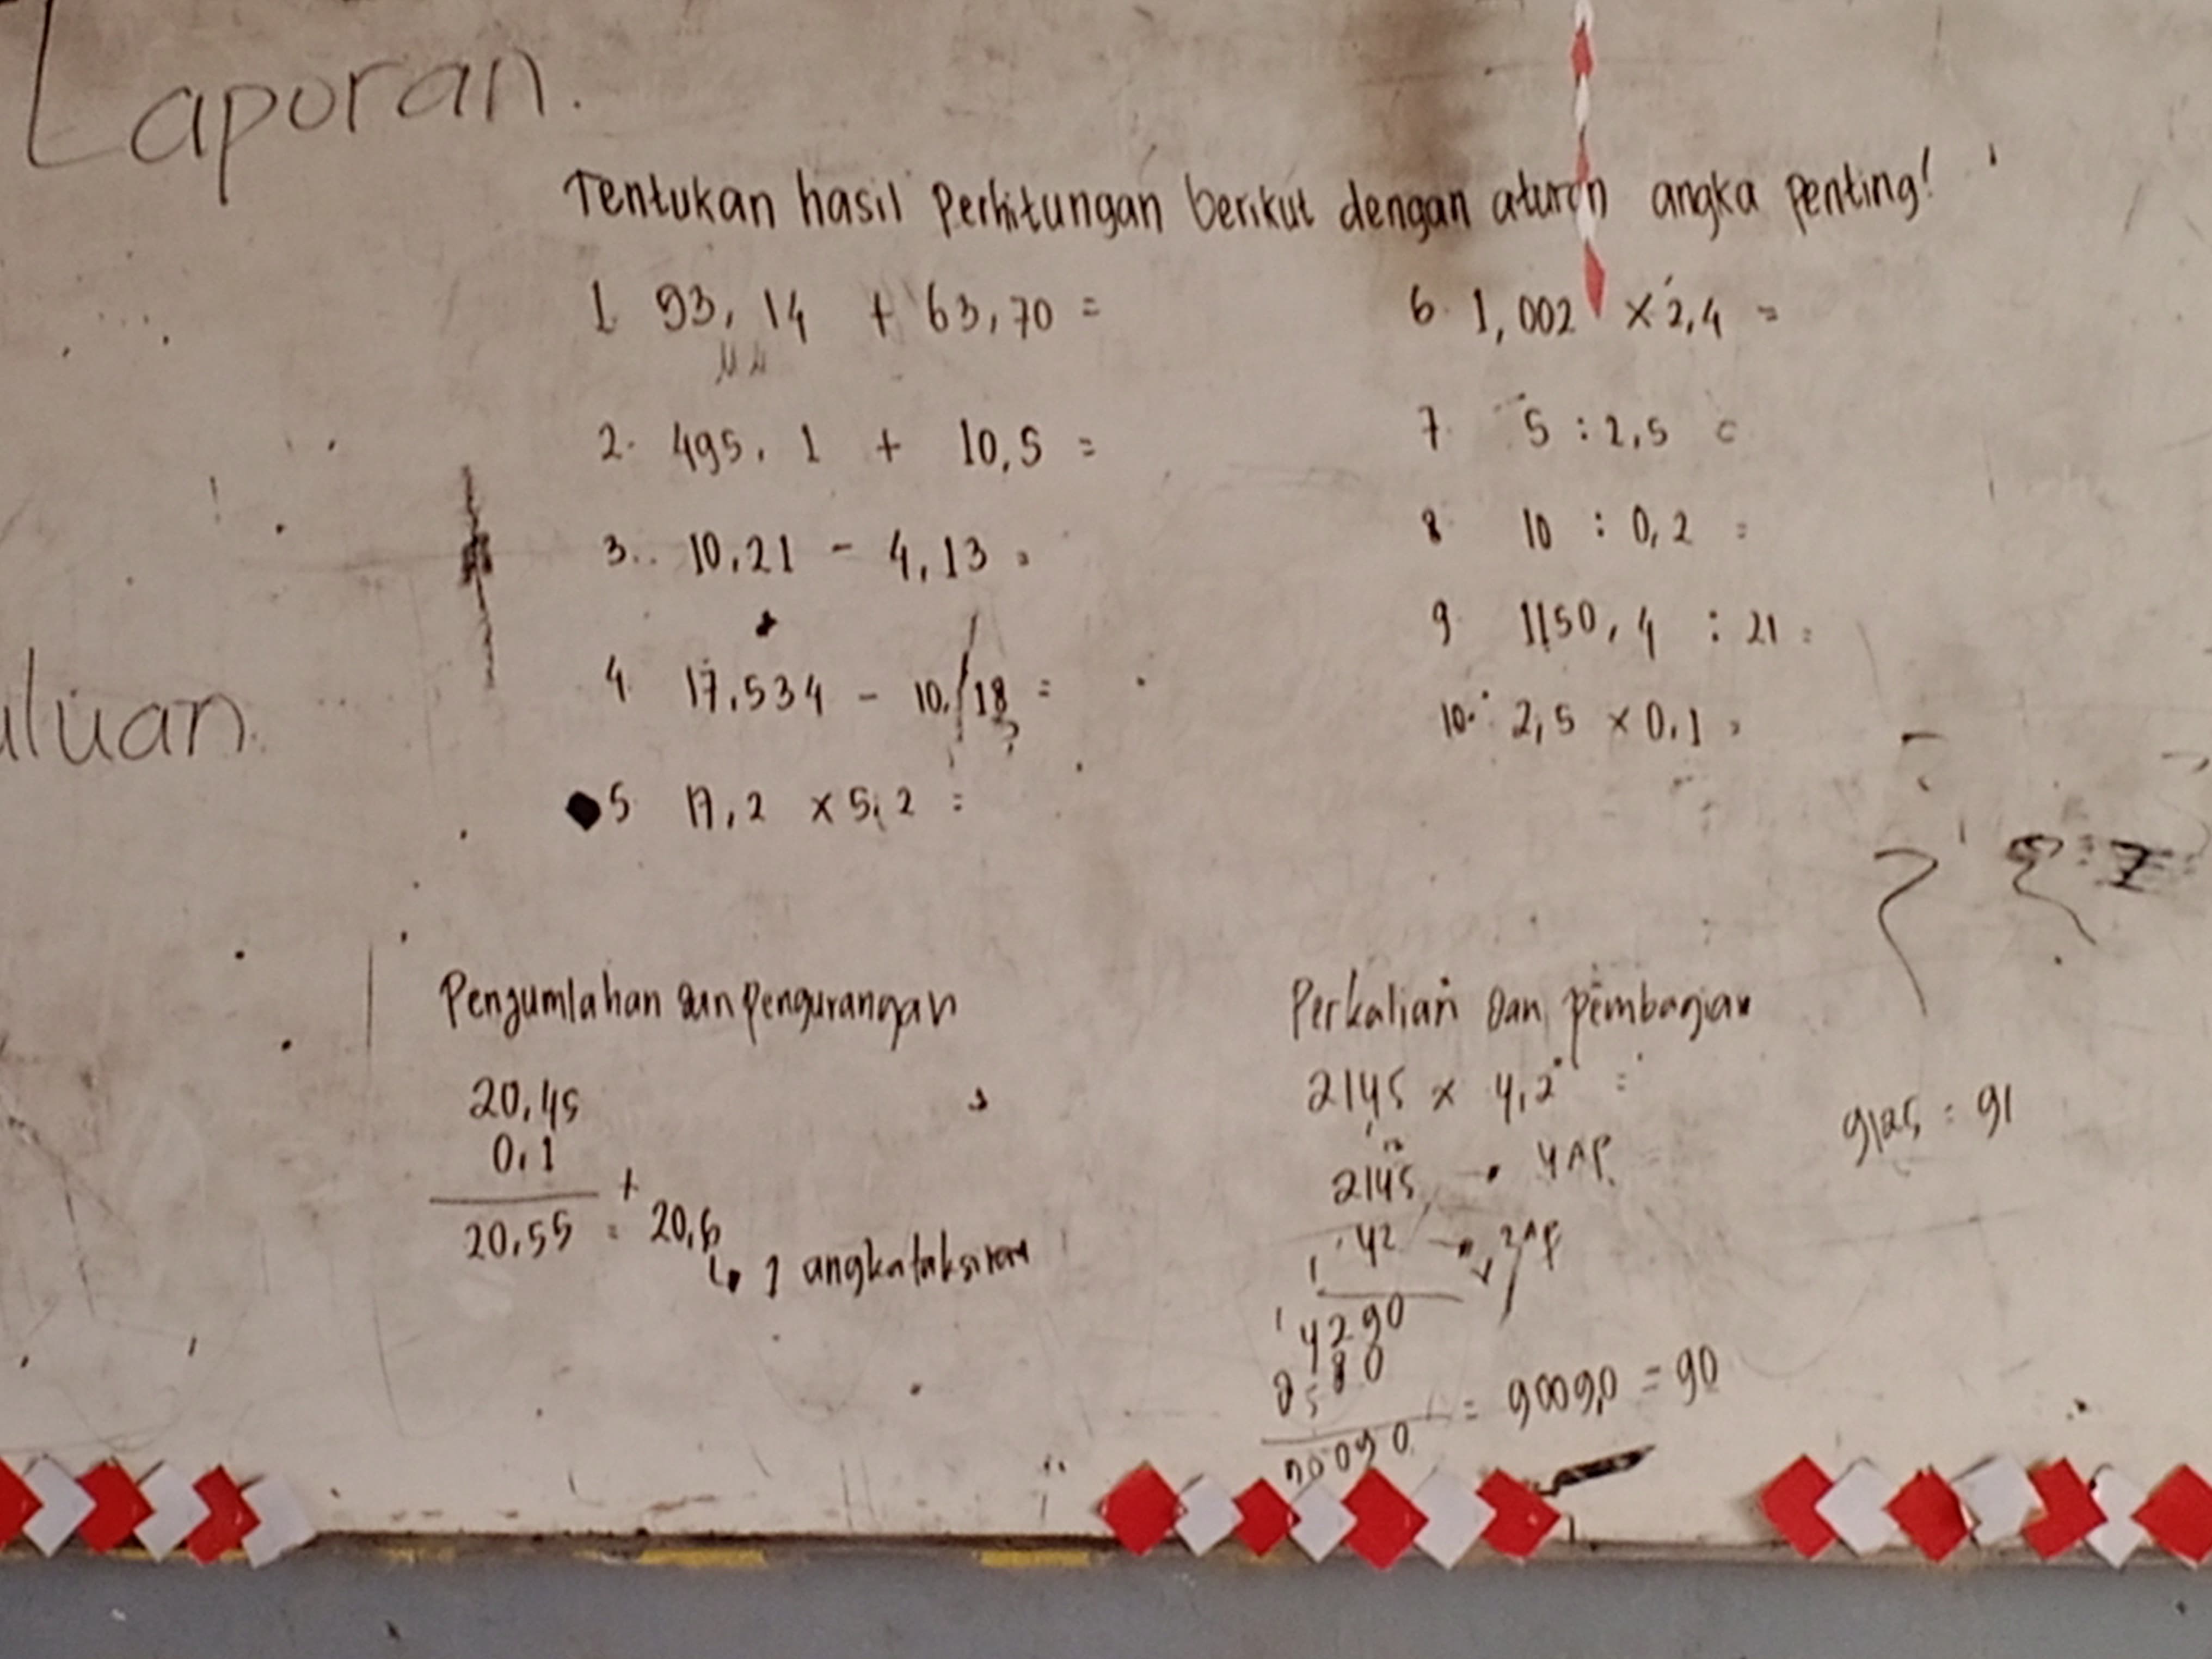 Laporan.
Tentukan hasil Perhitungan berikut dengan aturan angka penting!
1. 93,14 + 63,70 =
2. 495,1 + 10,5 =
3. 10,21 - 4,13 =
4. 17,534 - 10,18 =
5. 17,2 x 5,2 =
6. 1,002 x 2,4 =
7. 5 : 2,5 =
8. 10 : 0,2 =
9. 1150,4 : 21 =
10. 2,5 x 0,1 =
uluan.
Penjumlahan dan pengurangan
20,45
0,1
+
20,55 = 20,6
↳ 1 angka taksiran
Perkalian dan pembagian
2145 x 4,2 =
2145 → 4 AP
42 → 2 AP
4290
8580
90090 = 9009,0 = 90
9125 = 91